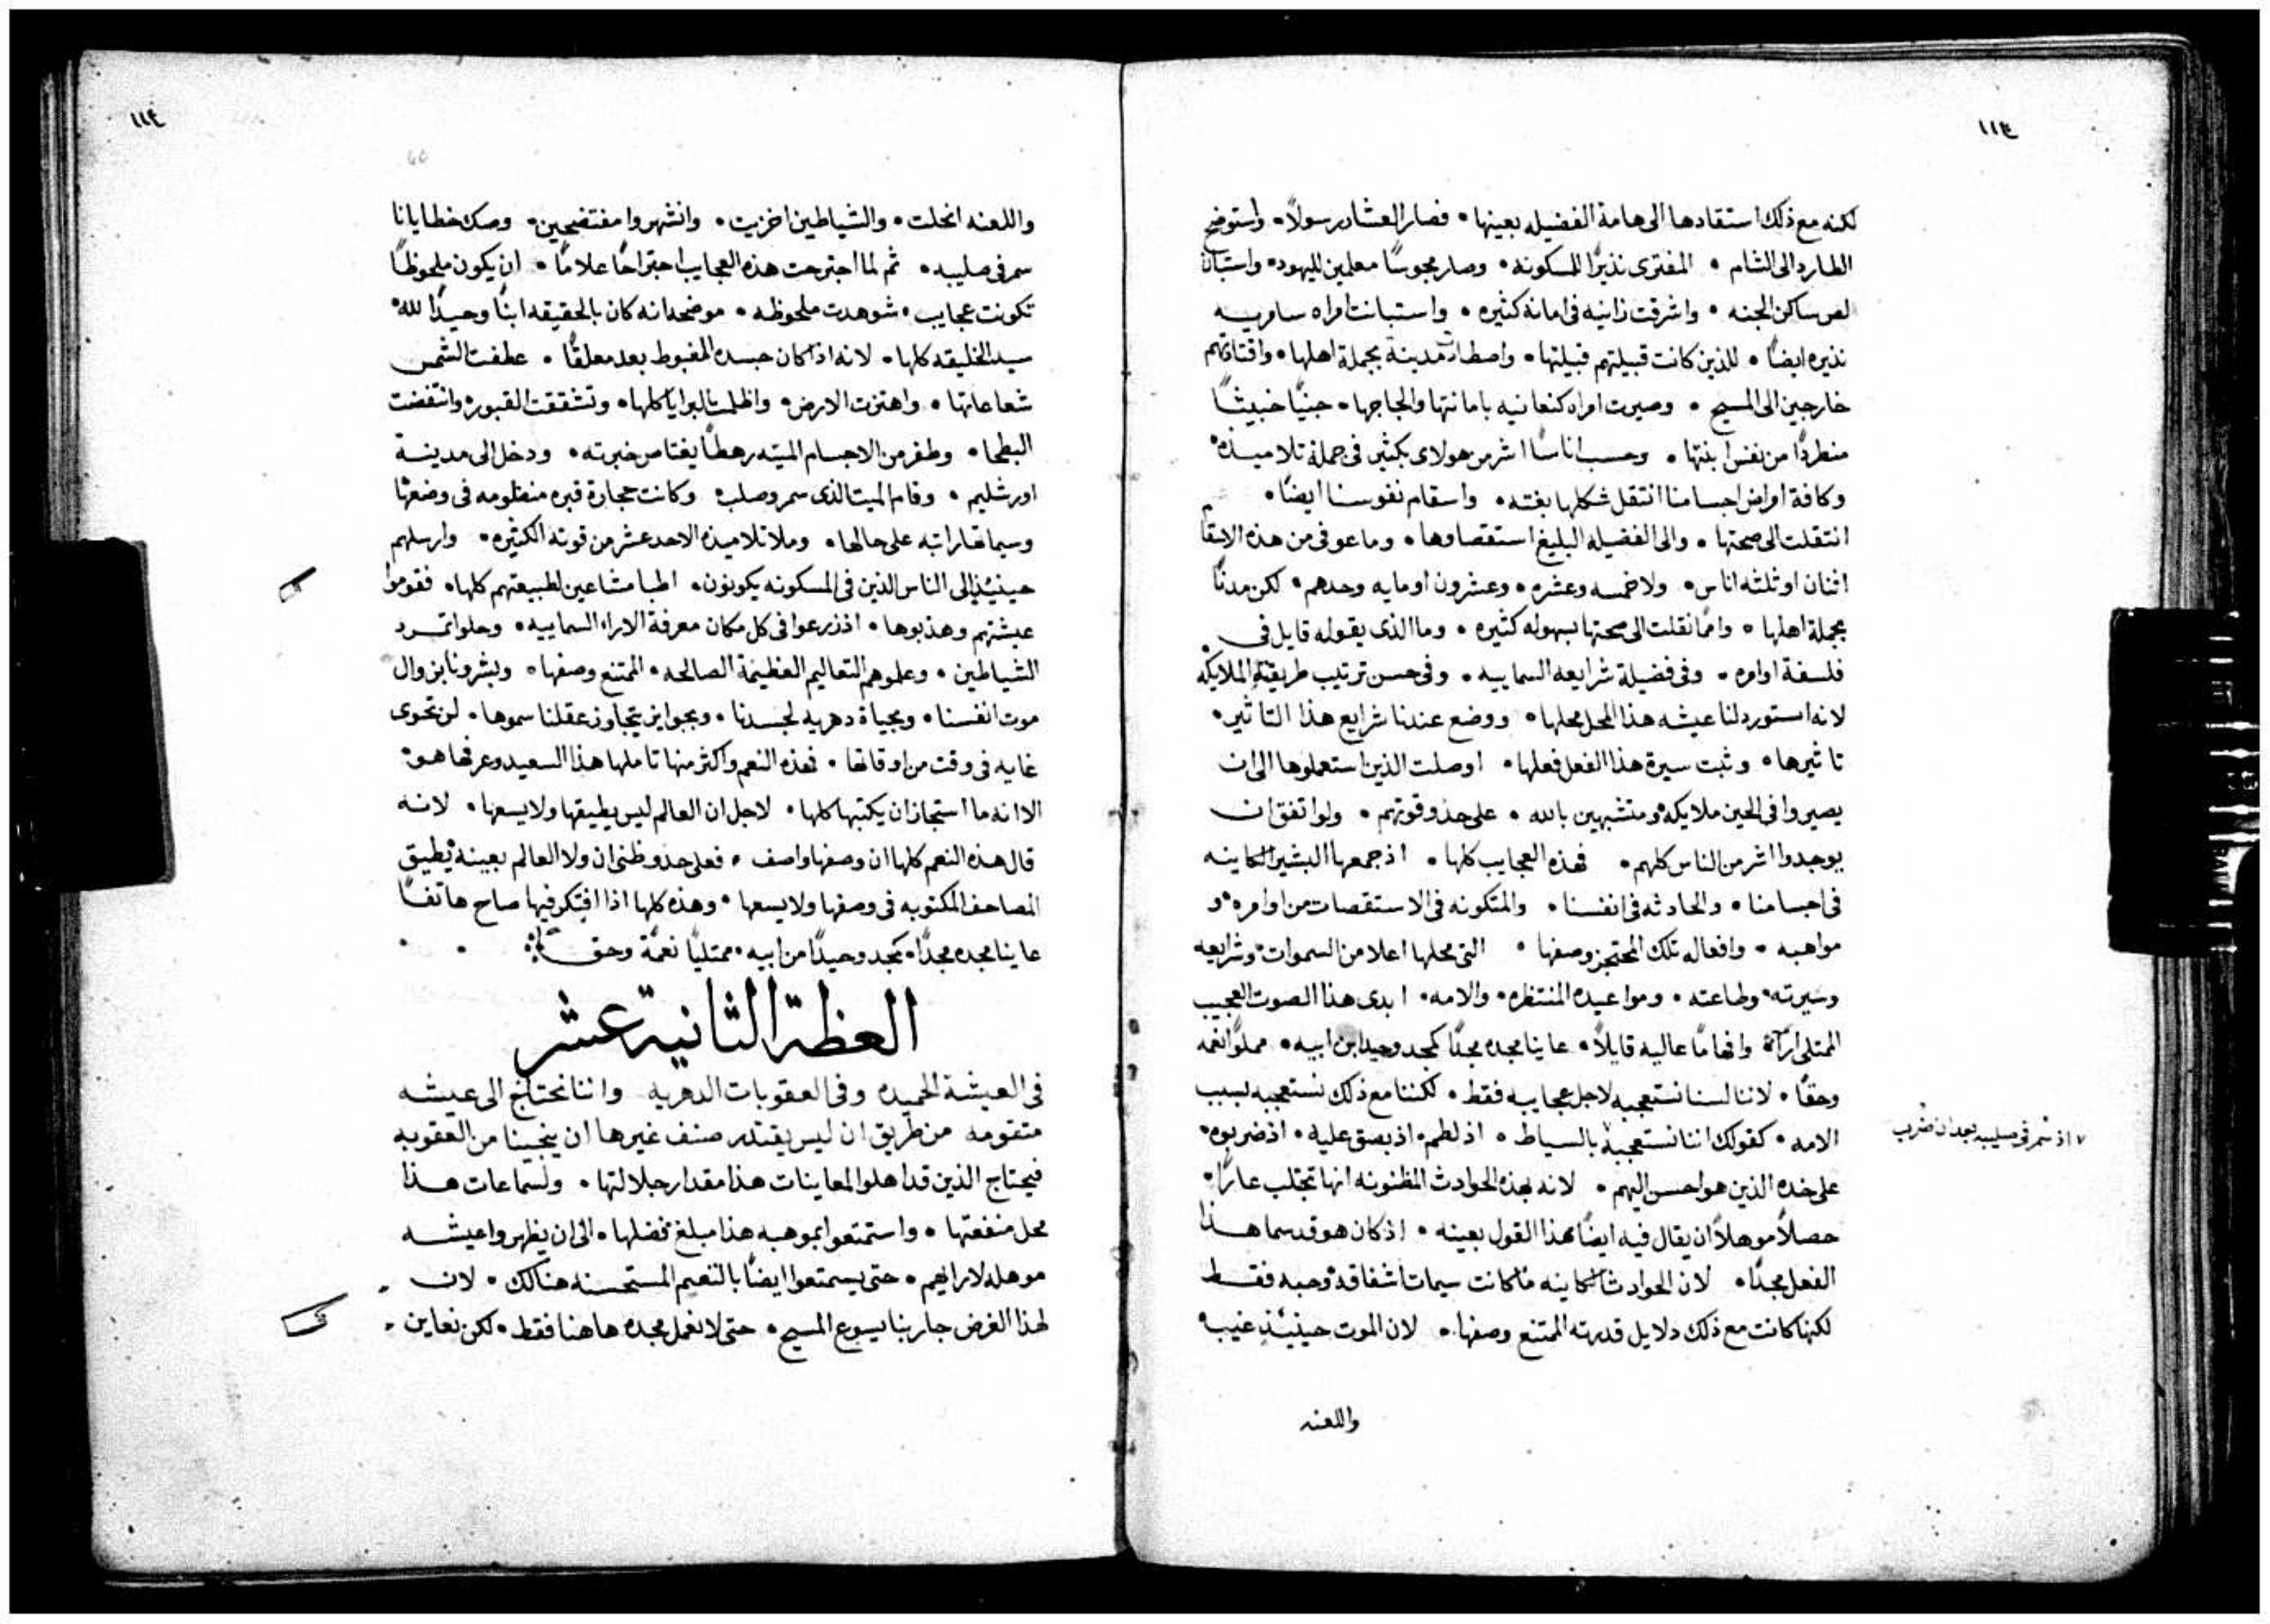 ١١٣
لكنه مع ذلك استقادها الى هامة الفضيله بعينها • فصار العشار رسولاً • واستوضح
الطارد الى الشام • المفترى نذيرًا للمسكونه • وصار مجوسًا معلمين لليهود • واستبان
لص ساكن الجنه • واشرقت زانيه فى امانة كثيره • واستبانت امراه سامريه
نذيره ايضًا • للذين كانت قبيلتهم قبيلتها • واصطادت مدينة بجملة اهلها • واقتادتهم
خارجين الى المسيح • وصيرت امراه كنعانيه بامانتها والحاجها • جنيًا خبيثًا
منطردًا من نفس ابنتها • وحسب اناسًا اشر من هولاى بكثير فى جملة تلاميذه •
وكافة امراض اجسامنا انتقل شكلها بغته • واسقام نفوسنا ايضًا •
انتقلت الى صحتها • والى الفضيله البليغ استقصاوها • وما عوفى من هذه الاسقام
اثنان او ثلثه اناس • ولا خمسه وعشره • وعشرون او مايه وحدهم • لكن مدنًا
بجملة اهلها • وامًا نقلت الى صحتها بسهوله كثيره • وما الذى يقوله قايل فى
فلسفة اوامره • وفى فضيلة شرايعه السماييه • وفى حسن ترتيب طريقة الملايكه
لانه استورد لنا عيشه هذا المحل محلها • ووضع عندنا شرايع هذا التاثير •
تاثيرها • وثبت سيرة هذا الفعل فعلها • اوصلت الذين استعملوها الى ان
يصيروا فى الحين ملايكه • ومتشبهين بالله • على حذو قوتهم • ولو اتفق ان
يوجدوا اشر من الناس كلهم • فهذه العجايب كلها • اذ جمعها البشير الكاينه
فى اجسامنا • والحادثه فى انفسنا • والمتكونه فى الاستقصات من اوامره • و
مواهبه • وافعاله تلك المحتجز وصفها • التى محلها اعلا من السموات • وشرايعه
وسيرته • وطاعته • ومواعيده المنتظره • والامه • ابدى هذا الصوت العجيب
الممتلى اراءً وافهامًا عاليه قايلاً • عاينا مجده مجدًا كمجد وحيد من ابيه • مملوًا نعمه
وحقًا • لاننا لسنا نستعجبه لاجل عجايبه فقط • لكننا مع ذلك نستعجبه بسبب
الامه • كقولك اننا نستعجبه بالسياط • اذ لطم • اذ بصق عليه • اذ ضربوه •
٧ اذ سمر فى صليبه بعد ان ضرب
على خده الذين هو احسن اليهم • لانه بهذه الحوادث المظنونه انها تجتلب عارًا •
حصلاً موهلاً ان يقال فيه ايضًا هذا القول بعينه • اذ كان هو قد سما هذا
الفعل مجدًا • لان الحوادث الكاينه ما كانت سيمات اشفاقه وحبه فقط
لكنها كانت مع ذلك دلايل قدرته الممتنع وصفها • لان الموت حينيذ غيب •
واللعنه
١١٤
واللعنه انحلت • والشياطين اخزيت • وانشهروا مفتضحين • وصك خطايانا
سمر فى صليبه • ثم لما اجترحت هذه العجايب اجتراحًا علامًا • ان يكون ملحوظًا
تكونت عجايب • شوهدت ملحوظه • موضحه انه كان بالحقيقه ابنًا وحيدًا لله •
سيد الخليقه كلها • لانه اذا كان جسده المغبوط بعد معلقًا • عطفت الشمس
شعاعاتها • واهتزت الارض • واظلمت البرايا كلها • وتشققت القبور • وانتفضت
البطحا • وطفر من الاجسام الميته رهطًا يفتا من خبرته • ودخل الى مدينة
اورشليم • وقام الميت الذى سمر وصلب • وكانت حجارة قبره منظومه فى وضعها
وسيماتها راتبه على حالها • وملا تلاميذه الاحد عشر من قوته الكثيره • وارسلهم
حينيذ الى الناس الذين فى المسكونه يكونون • اطبا مشاعين لطبيعتهم كلها • فقوموا
عيشتهم وهذبوها • اذ زرعوا فى كل مكان معرفة الاراء السماييه • وحلوا تمرد
الشياطين • وعلموهم التعاليم العظيمة الصالحه • الممتنع وصفها • وبشرونا بزوال
موت انفسنا • وبحياة دهريه لجسدنا • وبجوايز يتجاوز عقلنا سموها • لن تحوى
غايه فى وقت من اوقاتها • فهذه النعم واكثر منها تاملها هذا السعيد وعرفها هو •
الا انه ما استجاز ان يكتبها كلها • لاجل ان العالم ليس يطيقها ولا يسعها • لانه
قال هذه النعم كلها ان وصفها واصف • فعلى حذو ظنى ان ولا العالم بعينه يطيق
المصاحف المكتوبه فى وصفها ولا يسعها • وهذه كلها اذا افتكر فيها صاح هاتفًا
عاينا مجده مجدًا • كمجد وحيدًا من ابيه • ممتليًا نعمًة وحقًا
العظة الثانية عشر
فى العيشة الحميده وفى العقوبات الدهريه واننا نحتاج الى عيشه
متقومه من طريق ان ليس يقتدر صنف غيرها ان ينجينا من العقوبه
فيحتاج الذين قد اهلوا لمعاينات هذا مقدار جلالتها • ولسماعات هذا
محل منفعتها • واستمتعوا بموهبه هذا مبلغ فضلها • الى ان يظهروا عيشه
موهله لارايهم • حتى يستمتعوا ايضًا بالنعيم المستحسنه هنالك • لان
لهذا الغرض جا ربنا يسوع المسيح • حتى لا نعمل مجده هاهنا فقط • لكن نعاين